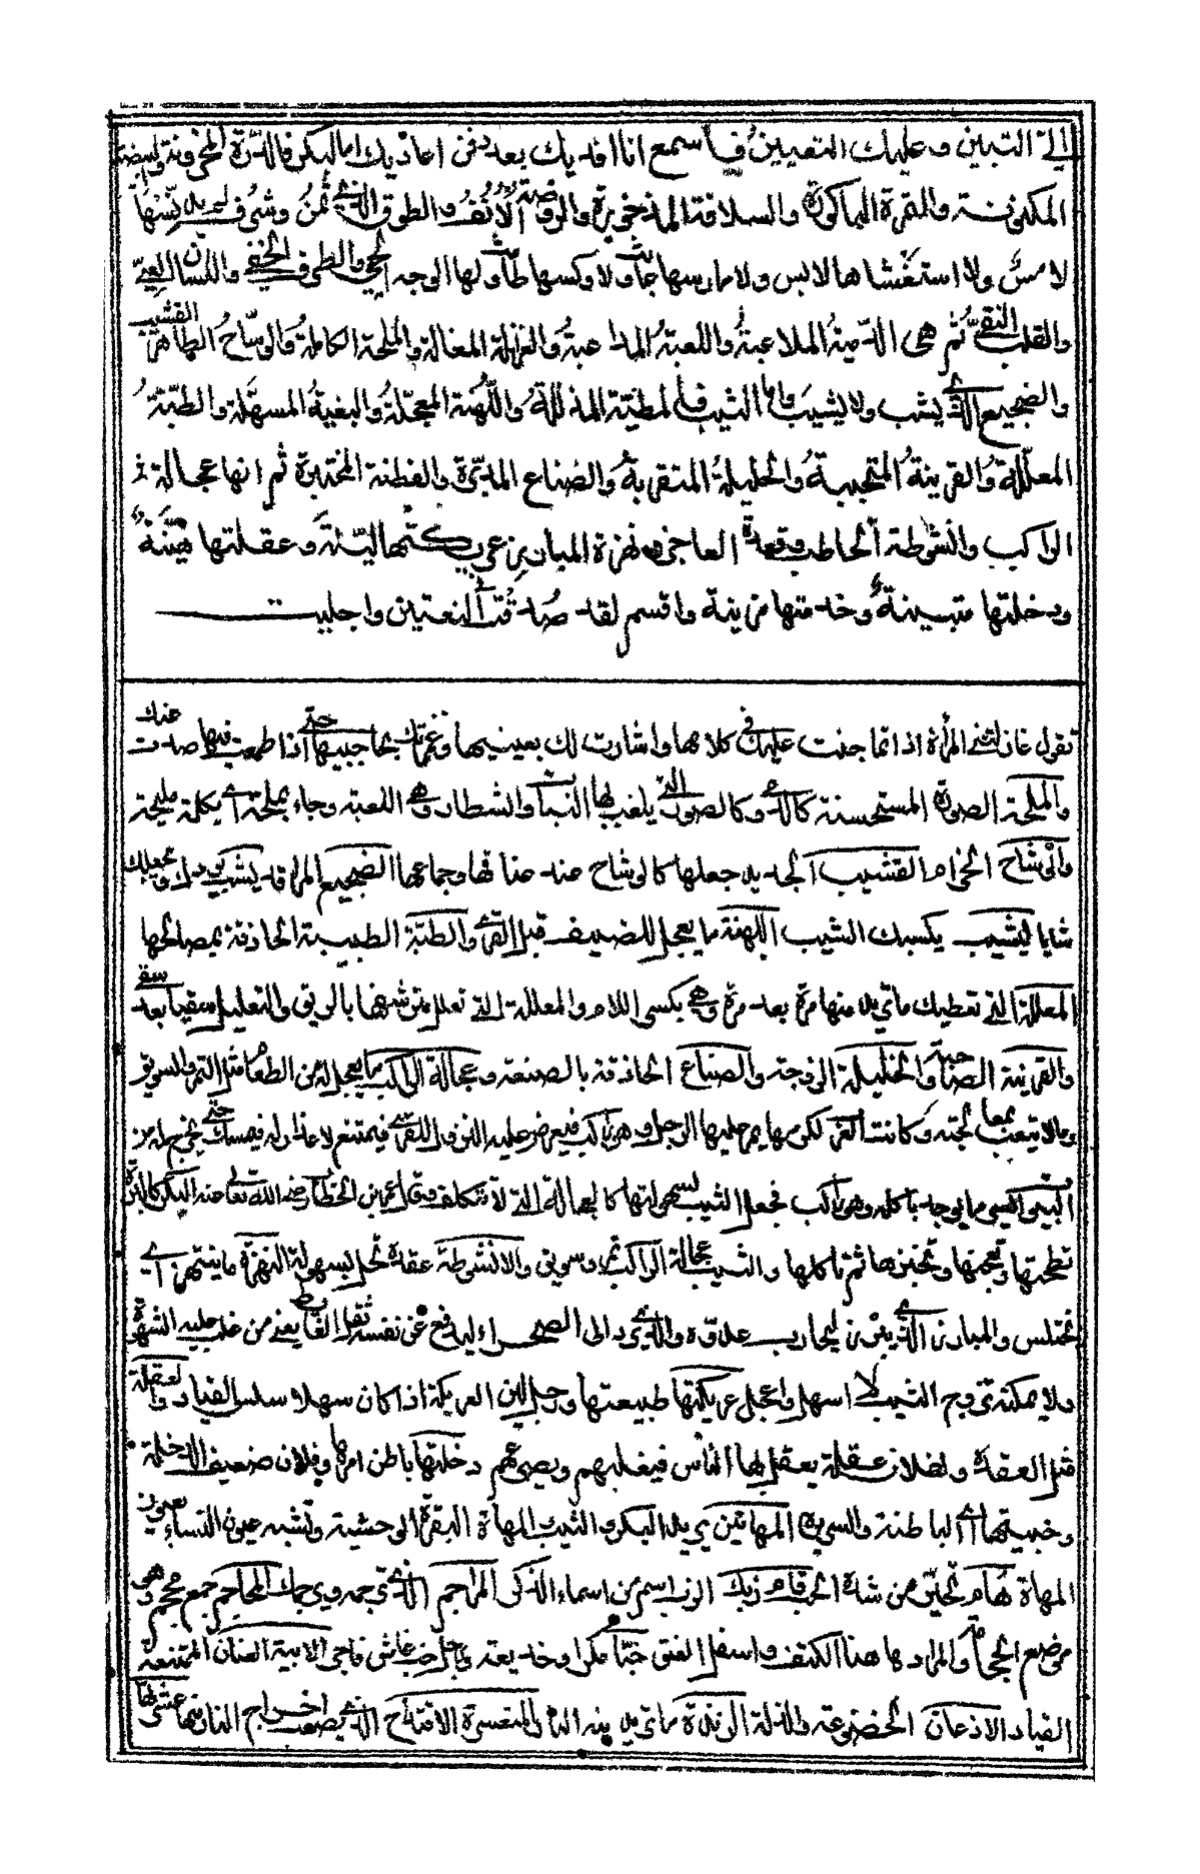 إليّ التبيين وعليك التعيين فاسمع أنا أفديك بعد دفن أعاديك أما البكر فالدرة المخزونة والبيضة
المكنونة والثمرة الباكورة والسلافة المذخورة والروضة الأنف والطوق الذي ثمن وشرف لم يدنسها
لامس ولا استغشاها لابس ولا مارسها عابث ولا وكسها طامث ولها الوجه الحيي والطرف الخفي واللسان العيي
والقلب النقي ثم هي الدمية الملاعبة واللعبة المداعبة والغزالة المغازلة والملحة الكاملة والوشاح الطاهر القشيب
والضجيع الذي يشب ولا يشيب وأما الثيب فالمطية المذللة واللهنة المعجلة والبغية المسهلة والطبة
المعللة والقرينة المتحببة والخليلة المتقربة والصناع المدبرة والفطنة المختبرة ثم إنها عجالة
الراكب وأنشوطة الخاطب وقعدة العاجز ونهزة المبارز عريكتها لينة وعقلتها هينة
ودخلتها متبينة وخدمتها مزينة وأقسم لقد صدقت في النعتين وجليت
تقول غازلتني المرأة اذا تماجنت عليك في كلامها واشارت لك بعينيها وغمزتك بحاجبيها حتى اذا طمعت فيها صدت عنك
والمليحة الصورة المستحسنة كالدمى وكالصور التي يلعب بها النبات والشطار وهي اللعبة وجاء بملحة اي بكلمة مليحة
والوشاح الحزام القشيب الجديد جعلها كالوشاح عند عناقها وجماعها الضجيع المراقد يشب يريد ويجعلك
شابا ليشيب يكسبك الشيب اللهنة ما يعجل للضيف قبل القرى والطبة الطبيبة الحاذقة بمصالحها
المعللة التي تعطيك ما تريد منها مرة بعد مرة وهي بكسر اللام والمعللة التي تعلل مترشفها بالريق والتعليل سقيا بعد سقي
والقرينة الصاحبة والخليلة الزوجة والصناع الحاذقة بالصنعة وعجالة الراكب ما يعجل له من الطعام مثل التمر والسويق
البيت اليسير ما يوجد باكله وهو راكب فجعل الثيب لسهولتها كالعجالة التي لا تتكلف وقال عمر بن الخطاب رضي الله تعالى عنه البكر كالبرة
تطحنها وتعجنها وتخبزها ثم تاكلها والثيب عجالة الراكب تمر وسويق والانشوطة عقدة تحل بسهولة النهزة ما ينتهز اي
يختلس والمبارز الذي يبرز ليحارب عدوه والذي برز الى الصحراء ليدفع عن نفسه ثقل الغائط يعني من غلب عليه الشهوة
ولا يمكنه تزوج الثيب لا اسهل واعجل عريكتها طبيعتها ورجل لين العريكة اذا كان سهلا سلس القياد والعقلة
مثل العقدة ولفلان عقلة يعقل بها الناس فيغلبهم ويصرعهم دخلتها باطن امرها وفلان ضعيف الدخلة
وخبيثتها اي الباطنة والسريرة المهاتين يريد البكر والثيب المهاة البقرة الوحشية وتشبه عيون النساء بعيون
المهاة هام تحير من شدة الحب قام زبك الزب اسم من اسماء الذكر المراجم الذي ترجمه ويرجمك المحاجم جمع محجم وهي
موضع الحجامة والمراد بها هنا الكتف واسفل العنق خبا مكرا وخديعة ورجل خب غاش فاجر الابية العنان الممتنعة
القياد الاذعان الخضوعة والذلة الزندة ما تريد منه النار المتعسرة الاقتداح الذي يصعب اخراج النار منها عشرتها